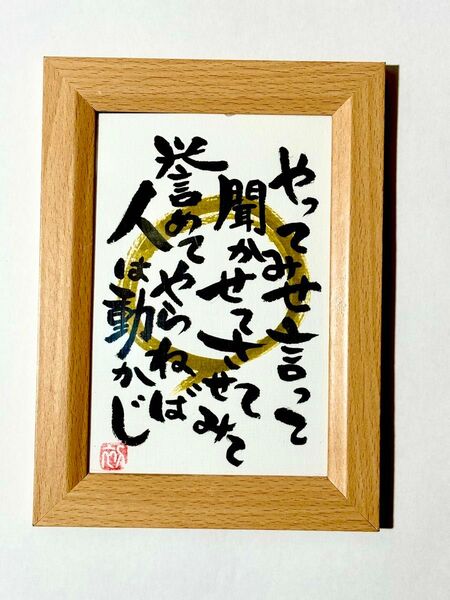 やってみせ言って
聞かせてさせてみて
誉めてやらねば
人は動かじ